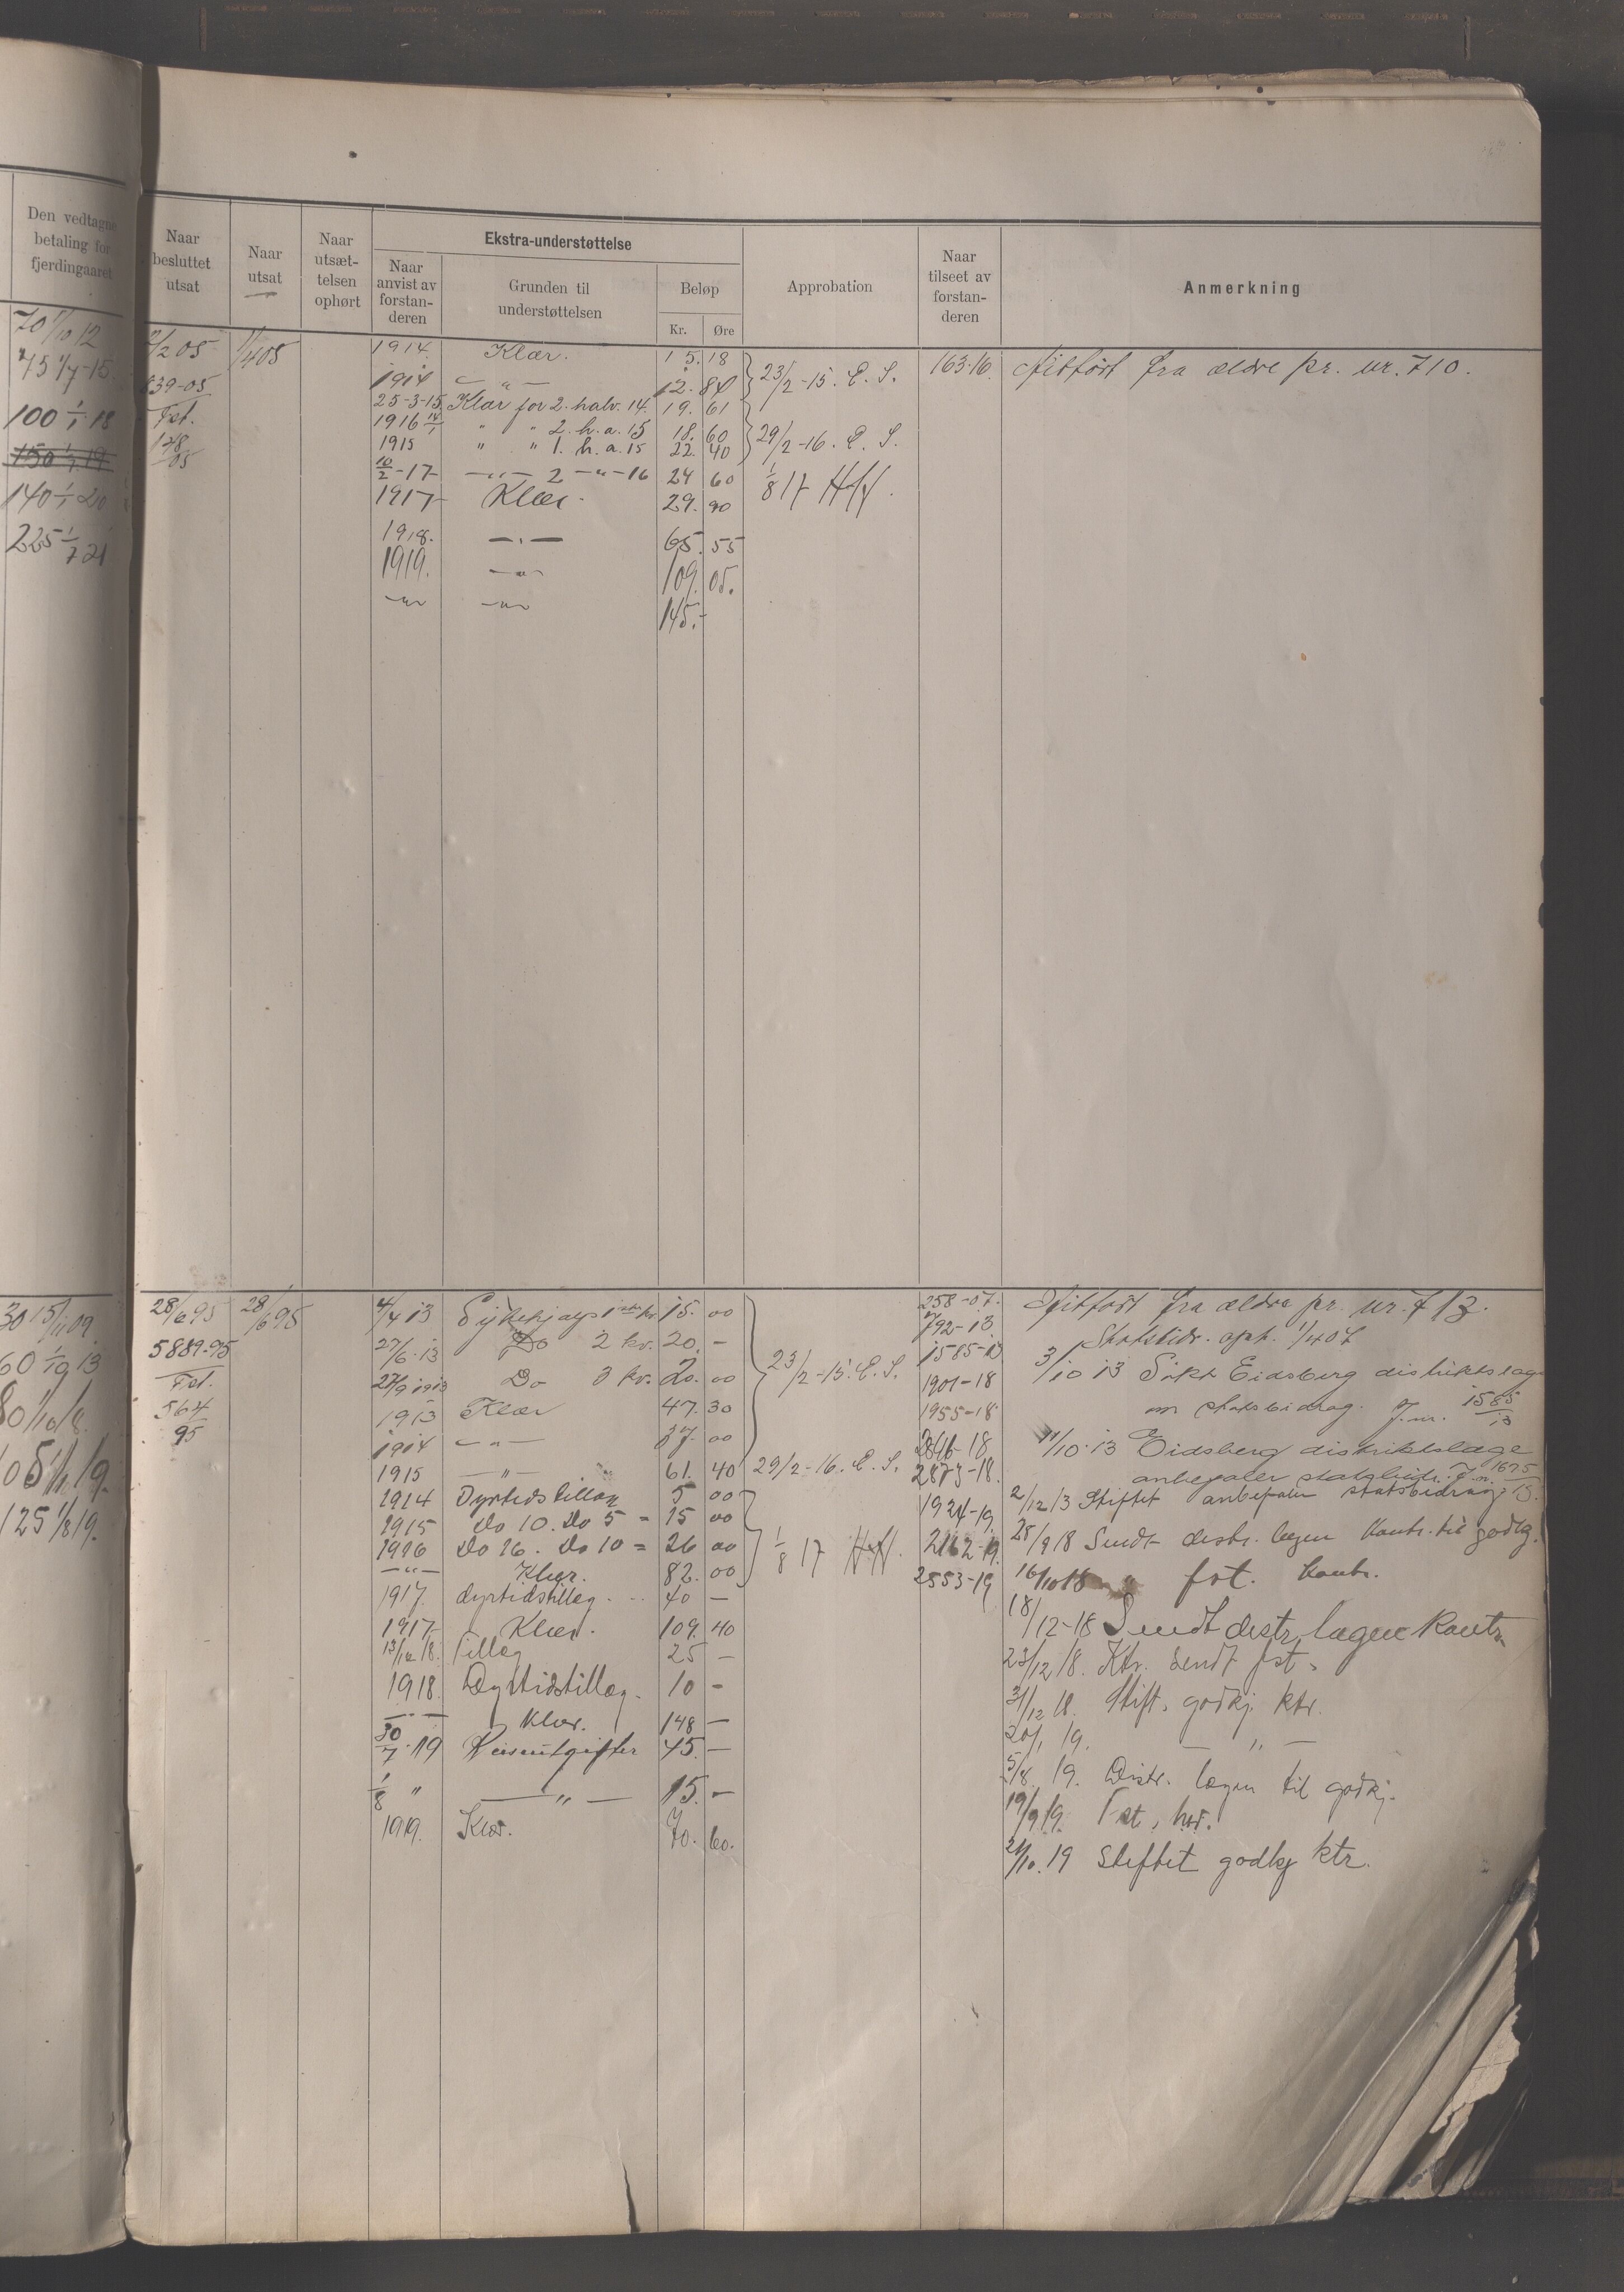 Den vedtagne
betaling for
fjerdingaaret
Naar
besluttet
utsat
Naar
utsat
Naar
utsæt-
telsen
ophørt
Ekstra-understøttelse
Naar
anvist av
forstan-
deren
Grunden til
understøttelsen
Beløp
Kr. Øre
Approbation
Naar
tilseet av
forstan-
deren
Anmerkning
70 1/10 12
75 1/7-15
100 1/1 18
150 1/7 19
140 1/1 20
225 1/7 21
2/2 05
839-05
Fst.
148
05
1/4 05
1914. Klær. 15. 18
1914 — " — 12. 84
25-3-15 Klær for 2. halv. 14. 19. 61
1916 14/1 " " 2. h. a. 15 18. 60
1915 " " 1. h. a. 15 22. 40
10/2-17 — " — 2 — " — 16 24 60
1917 Klær. 29. 90
1918. — " — 65. 55
1919. — " — 109. 05.
— " — — " — 145.-
23/2-15. E. S.
29/2-16. E. S.
1/8 17
163-16.
Aitført fra ældre pr. nr. 710.
30 15/11 09.
60 1/10 13
80 1/10 18.
105 1/1 19.
125 1/8 19.
28/6 95
5889-95
Fst.
564
95
28/6 95
4/4 13 Sykehjælp 1ste kv. 15. 00
27/6-13 Do 2 kv. 20. —
27/9 1913 Do 3 kv. 20. 00
1913 Klær 47. 30
1914 — " — 37. 00
1915 — " — 61. 40
1914 Dyrtidstillæg 5 00
1915 Do 10. Do 5 = 15 00
1916 Do 16. Do 10 = 26 00
— " — Klær. 82. 00
1917. dyrtidstillæg. 40 —
1917 Klær. 109. 40
13/12 18. Tillæg 25 —
1918. Dyrtidstillæg. 10 -
— " — Klær. 148 —
30/7-19 Reiseutgifter 45. —
1/8 " — " — 15. —
1919. Klær. 70. 60.
23/2-15. E. S.
29/2-16. E. S.
1/8 17
258-07.
792-13
1585-13
1901-18
1955-18
2846-18
2873-18.
1924-19.
2162-19.
2553-19
Aitført fra ældre pr. nr. 713.
Statsbidr. oph. 1/4 07
3/10 13 Søkt Eidsberg distriktslæge
om statsbidrag. J.nr. 1585/13
11/10-13 Eidsberg distriktslæge
anbefaler statsbidr. J.nr. 1675/13.
2/12 13 Stiftet anbefaler statsbidrag
25/9 18 Sendt distr. lægen kontr. til godkj.
16/10 18 " fst. kontr.
18/12-18 Sendt distr. lægen kontr.
23/12 18. Ktr. sendt fst.
31/12 18. Stift. godkj. ktr.
20/1 19. — " —
5/8. 19. Distr. lægen til godkj.
19/9 19. Fst,
21/10. 19 Stiftet godkj ktr.